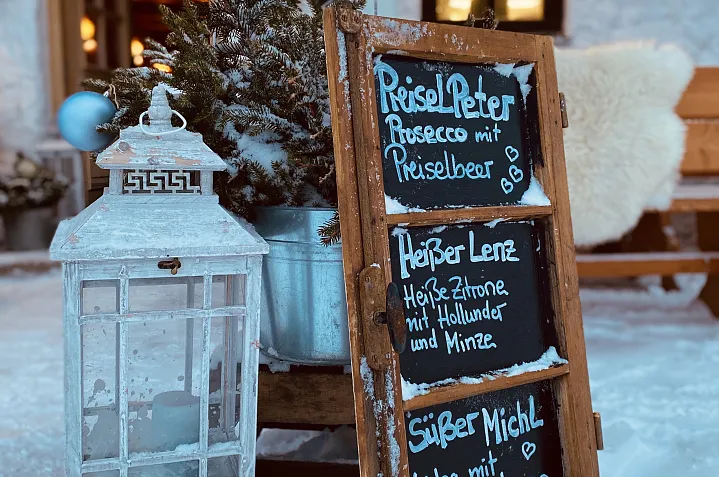 PreiselPeter
Prosecco mit
Preiselbeer
Heißer Lenz
Heiße Zitrone
mit Hollunder
und Minze
Süßer Michl
mit